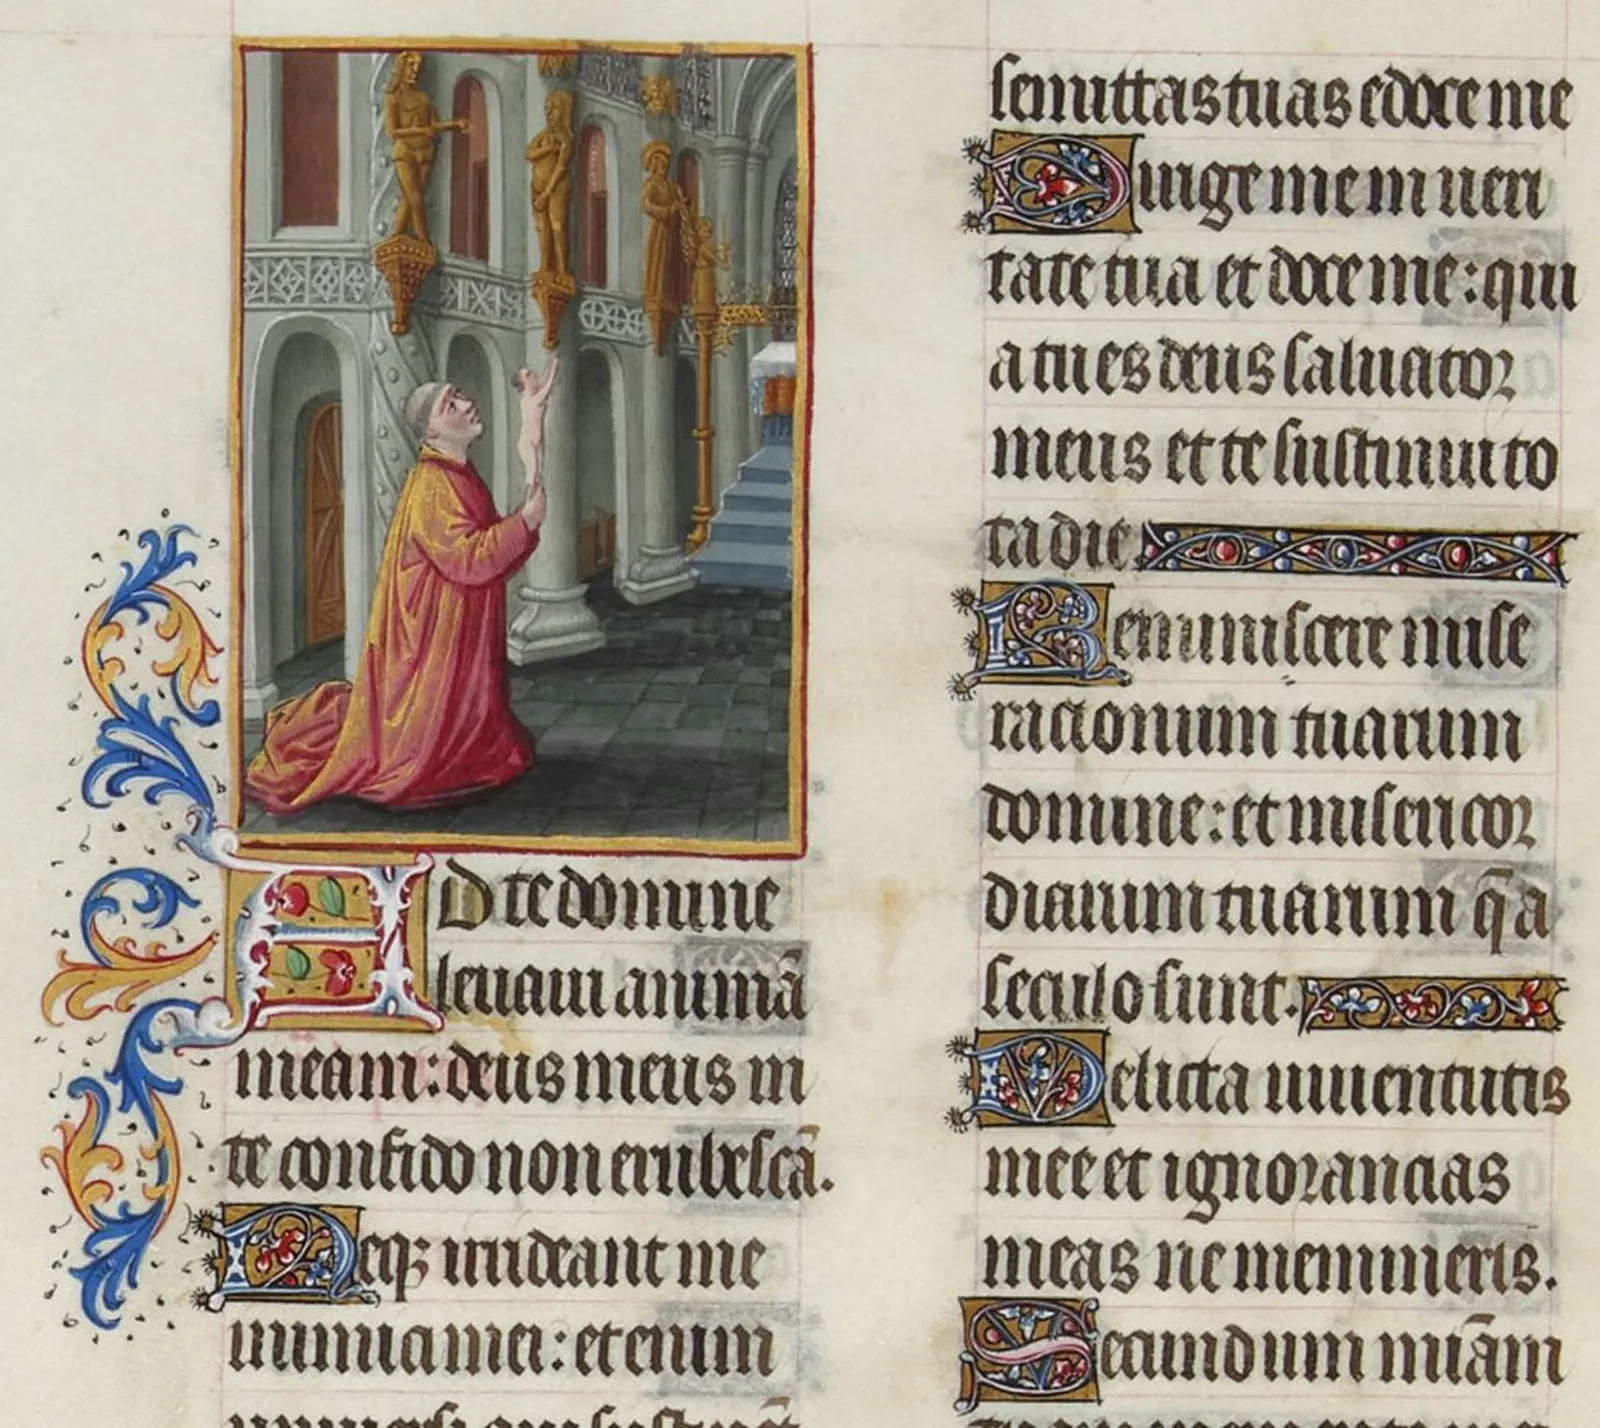 AD te domine
leuaui animā
meam: deus meus in
te confido non erubescā.
Neqꝫ irrideant me
inimici mei: etenim
uniuersi qui sustinēt
semittas tuas edoce me
Dirige me in ueri
tate tua et doce me: qui
a tu es deus saluator
meus et te sustinui to
ta die
Reminiscere mise
racionum tuarum
domine: et misericor
diarum tuarum q̄ a
seculo sunt.
Delicta iuuentutis
mee et ignorancias
meas ne memineris.
Secundum miām